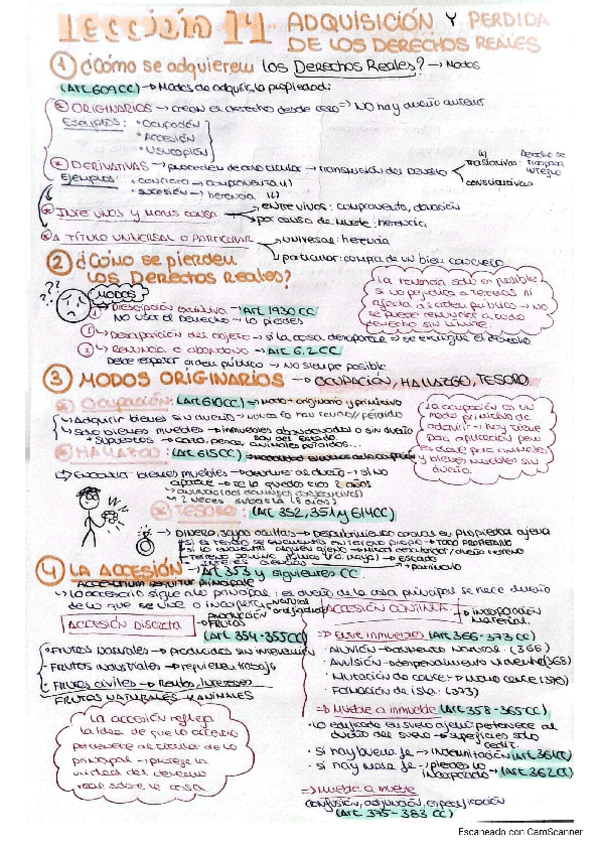 Lección 14 ADQUISICIÓN Y PERDIDA
DE LOS DERECHOS REALES
1 ¿Cómo se adquieren los Derechos Reales? → Modos
(Art. 609 CC) → Modos de adquirir la propiedad:
ORIGINARIOS → crean el derecho desde cero → NO hay dueño anterior
Ejemplos: • Ocupación
• Accesión
• Usucapión
DERIVATIVAS → proceden de otro titular → transmisión del derecho
traslativas:
Derecho se
íntegro
constitutivas
Ejemplos: • contrato → compraventa
• sucesión → herencia
INTER VIVOS y MORTIS CAUSA
entre vivos: compraventa, donación
por causa de muerte: herencia
A TÍTULO UNIVERSAL O PARTICULAR
universal: herencia
particular: compra de un bien concreto
2 ¿Cómo se pierden
los Derechos Reales?
??
MODOS
1 Prescripción extintiva → Art. 1930 CC
No usas el derecho → lo pierdes
Desaparición del objeto → si la cosa desaparece → se extingue el derecho
3 Renuncia o abandono → Art. 6.2 CC
Debe respetar orden público → NO siempre posible
La renuncia solo es posible
si no perjudica a terceros ni
afecta al orden público → no
se puede renunciar a todo
derecho sin límite.
3 MODOS ORIGINARIOS → OCUPACIÓN, HALLAZGO, TESORO
Ocupación: (Art 610 CC) → modo + originario y primitivo
Adquirir bienes sin dueño
Solo bienes muebles → inmuebles abandonados o sin dueño
son del Estado
+ supuestos → caza, pesca, animales perdidos...
La ocupación es un
modo primitivo de
adquirir → hoy tiene
poca aplicación pero
es clave para animales
y bienes muebles sin
dueño.
HALLAZGO: (Art 615 CC)
Encontrar bienes muebles → devolver al dueño → si no
aparece → te lo quedas tras 2 años
TESORO: (Art 352, 351 y 614 CC)
DINERO, joyas ocultas → Descubrimiento casual en propiedad ajena
si el tesoro se encuentra en terreno propio → TODO PROPIETARIO
si lo encuentra alguien ajeno → mitad descubridor/dueño terreno
→ Estado
4 LA ACCESIÓN → Art 353 y siguientes CC
Accessorium sequitur principale
Lo accesorio sigue a lo principal: el dueño de la cosa principal se hace dueño
de lo que se une o incorpora
ACCESIÓN DISCRETA → FRUTOS
(Art 354-355 CC)
• Frutos naturales → Producidos sin intervención
• Frutos industriales → requieren trabajo
• Frutos civiles → Rentas, intereses
La accesión refleja
la idea de que lo accesorio
pertenece al titular de lo
principal → protege la
unidad del derecho
real sobre la cosa
ACCESIÓN CONTINUA → incorporación
material.
→ Entre inmuebles (Art 366-373 CC)
• Aluvión → aumento natural. (366)
• Avulsión → desprendimiento violento (368)
• Mutación de cauce → nuevo cauce (370)
• Formación de isla. (373)
→ Mueble a inmueble (Art 358-365 CC)
• Lo edificado en suelo ajeno pertenece al
dueño del suelo → superficies solo
cedit.
• Si hay buena fe → indemnización (Art 361 CC)
• Si hay mala fe → pierdes lo
incorporado → (Art 362 CC)
→ Mueble a mueble
Confusión, adjunción, especificación
(Art 375-383 CC)
Escaneado con CamScanner